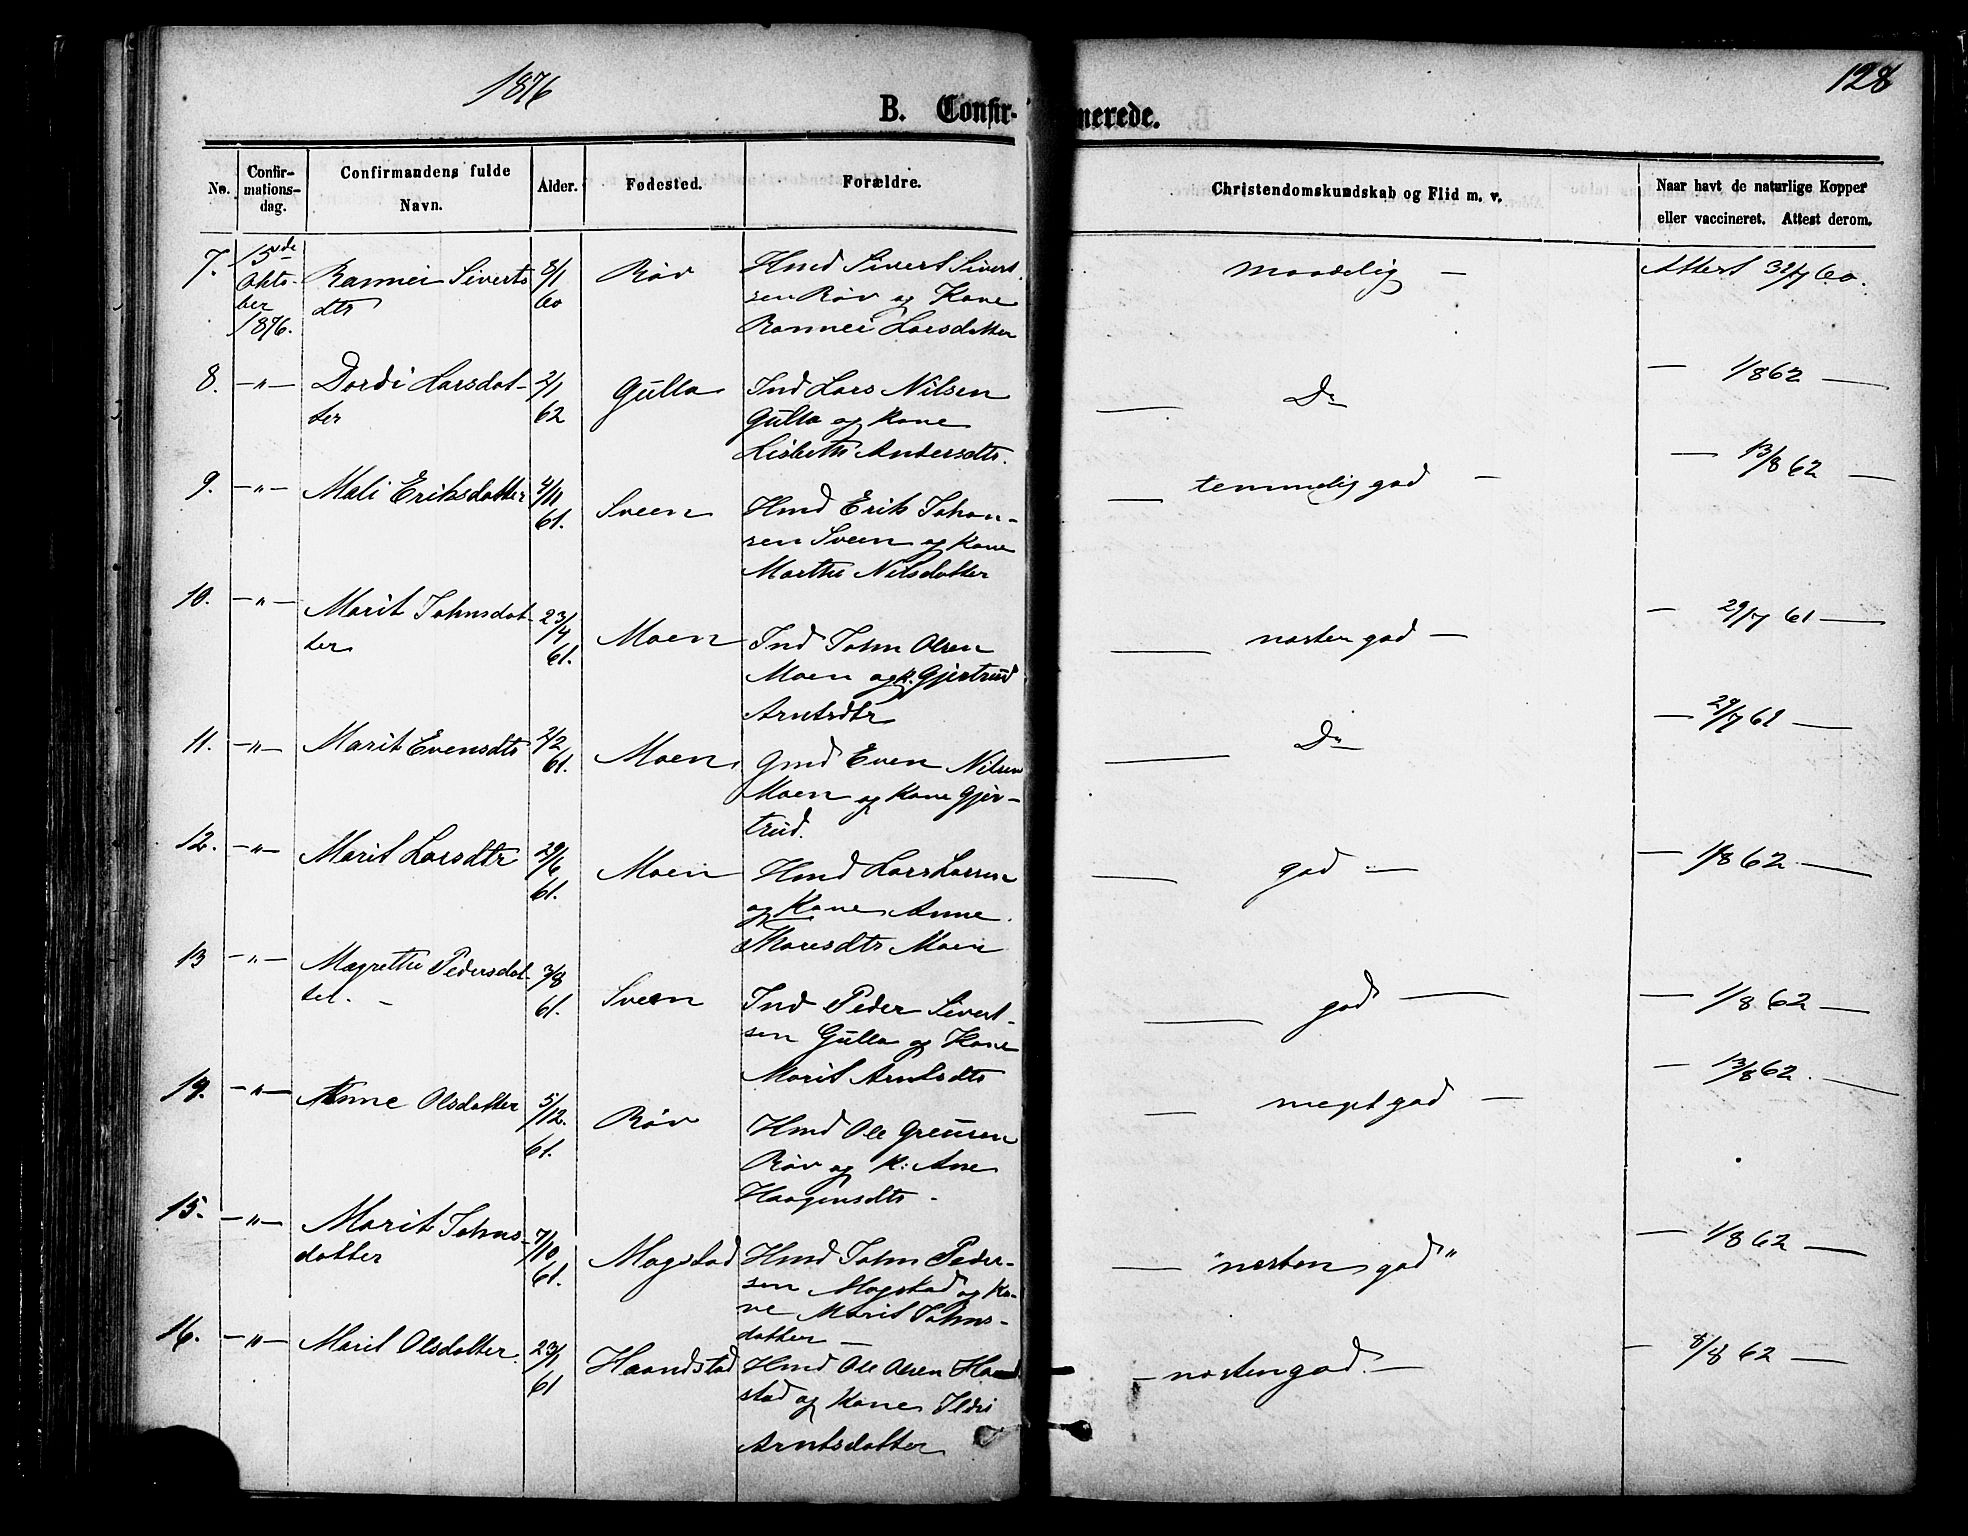 1876
128
B. Confir-merede.
No.
Confir-
mations-
dag.
Confirmandens fulde
Navn.
Alder.
Fødested.
Forældre.
Christendomskundskab og Flid m. v.
Naar havt de naturlige Kopper
eller vaccineret. Attest derom.
7. 15de
Okto-
ber
1876.
Rannei Siverts
dtr
8/1
60
Røv
Hmd Sivert Sivert
sen Røv og Kone
Rannei Larsdatter
maadelig —
Attest 60.
8. —"— Dordi Larsdat-
ter
2/1
62
Gulla
Ind Lars Nilsen
Gulla og Kone
Lisbeth Andersdtr.
— Do
— 1/8 62 —
9. —"— Mali Eriksdatter
4/11
61.
Sveen
Hmd Erik Johan-
sen Sveen og Kone
Marthe Nilsdatter
— temmelig god —
— 13/8 62 —
10. —"— Marit Johnsdat-
ter
23/4
61.
Moen
Ind John Olsen
Moen og k. Gjertrud
Arntsdtr
— næsten god —
— 29/7 61 —
11. —"— Marit Evensdtr
2/2
61.
Moen
Gmd Even Nilsen
Moen og Kone Gjer-
trud.
— Do
— 29/7 61 —
12. —"— Marit Larsdtr
29/6
61.
Moen
Hmd Lars Larsen
og Kone Anne
Moen
— god —
— 1/8 62 —
13 —"— Magrethe Pedersdat-
ter. -
3/8
61.
Sveen
Ind Peder Sivert-
sen Gulla og Kone
Marit Arntsdtr
— god —
— 1/8 62 —
14. —"— Anne Olsdatter
5/12.
61.
Røv
Hmd Ole
Røv og K: Ane
Haagensdtr -
— meget god —
— 13/8 62. —
15. —"— Marit Johns-
datter
7/10
61.
Mogstad
Hmd John Peder-
sen Mogstad og Ko-
ne Marit Johns-
datter —
— "næsten god"
— 1/8 62 —
16. —"— Marit Olsdatter.
23/1
61
Haandstad
Hmd Ole Olsen
stad og Kone Ildri
Arntsdatter
— næsten god. —
- 8/8 62 —